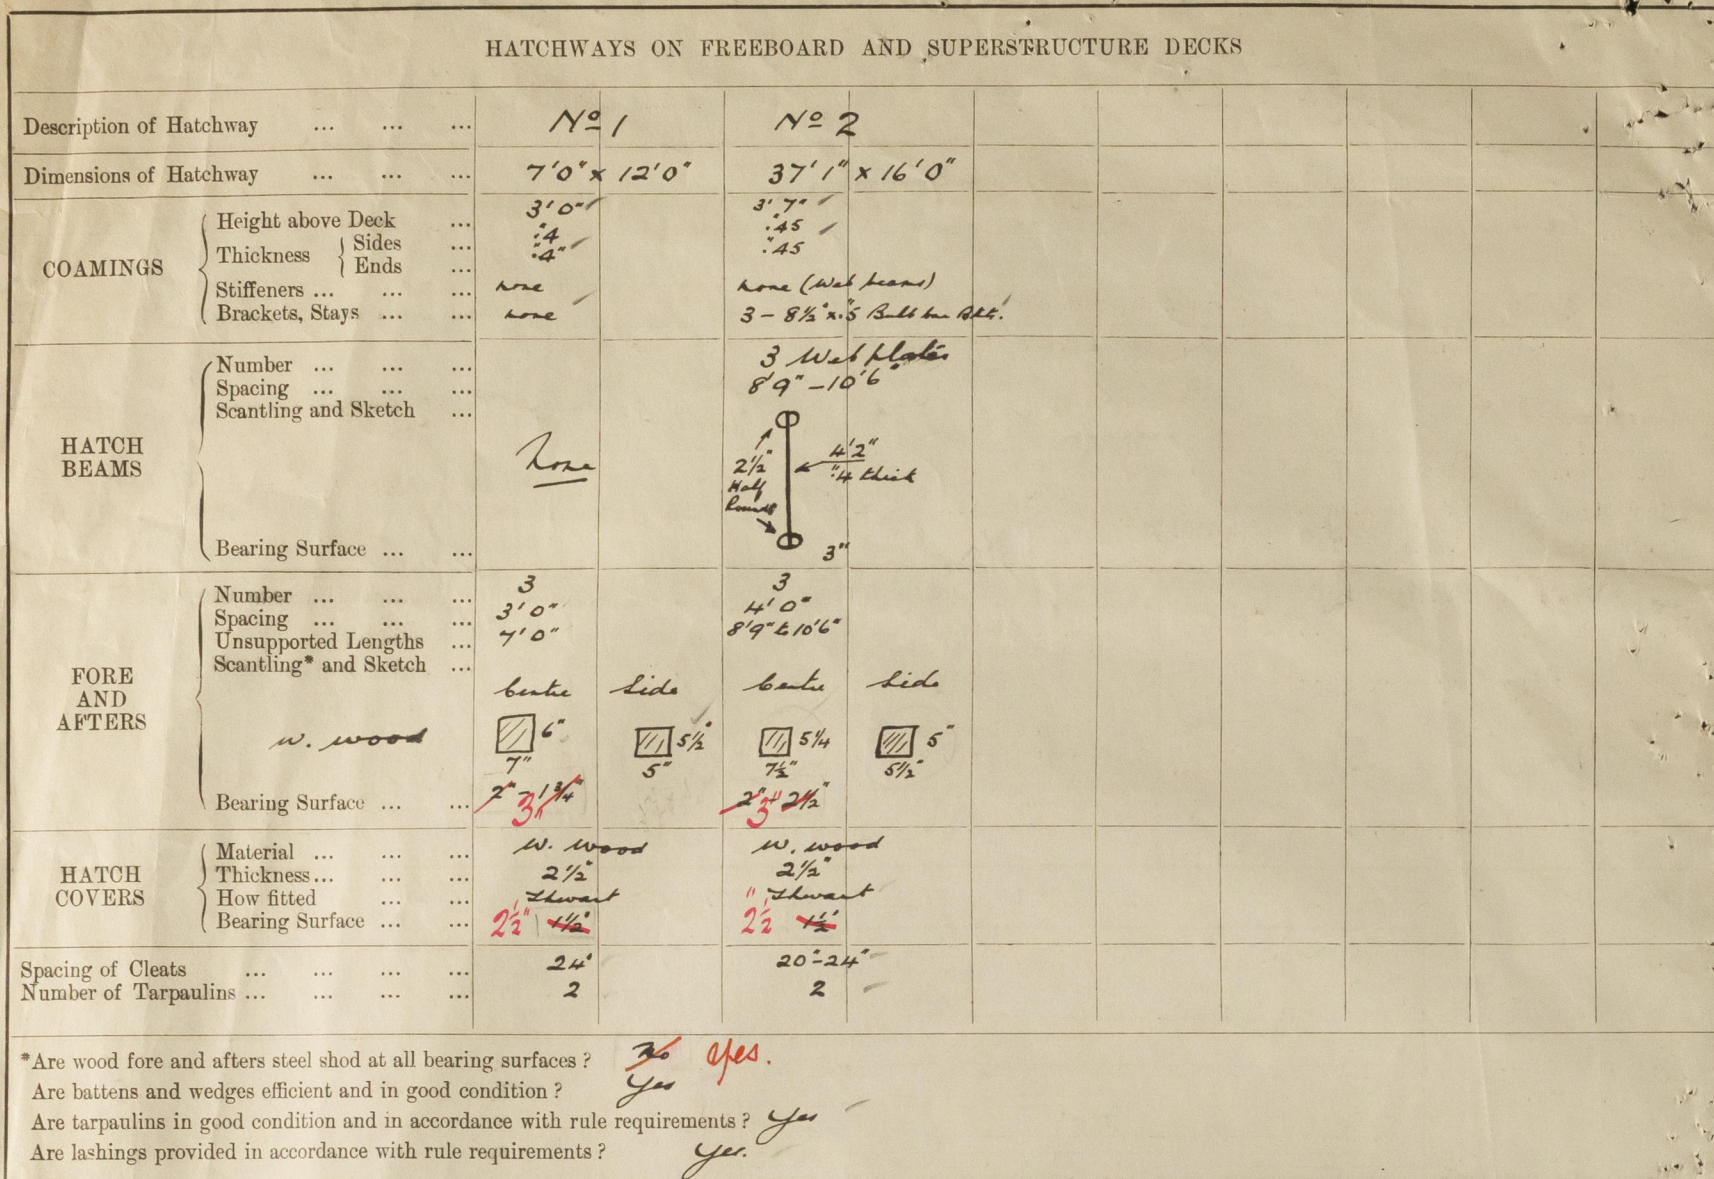 HATCHWAYS ON FREEBOARD AND SUPERSTRUCTURE DECKS
Description of Hatchway ... ... ... No 1 No 2
Dimensions of Hatchway ... ... ... 7'0" x 12'0" 37'1" x 16'0"
COAMINGS
Height above Deck ... 3'0" 3'7"
Thickness { Sides ... ".4 ".45
Ends ... ".4" ".45
Stiffeners ... ... ... none none (Web beams)
Brackets, Stays ... ... none 3 – 8½" x ".5 Bulb bar Bkts.
HATCH BEAMS
Number ... ... ... 3 Web plates
Spacing ... ... ... 8'9" – 10'6"
Scantling and Sketch ...
None
2½" Half Rounds
4'2"
".4 thick
Bearing Surface ... ... 3"
FORE AND AFTERS
Number ... ... ... 3 3
Spacing ... ... ... 3'0" 4'0"
Unsupported Lengths ... 7'0" 8'9" to 10'6"
Scantling* and Sketch ...
Centre Side Centre Side
w. wood 6" 5½" 5¼ 5"
7" 5" 7½" 5½"
Bearing Surface ... ... 2" – 1¾" 3" 2" 2½" 3"
HATCH COVERS
Material ... ... ... w. wood w. wood
Thickness... ... ... 2½" 2½"
How fitted ... ... Thwart Thwart
Bearing Surface ... ... 2½" 1½" 2½" 1½"
Spacing of Cleats ... ... ... ... 24" 20"–24"
Number of Tarpaulins ... ... ... ... 2 2
*Are wood fore and afters steel shod at all bearing surfaces ? No Yes.
Are battens and wedges efficient and in good condition ? Yes
Are tarpaulins in good condition and in accordance with rule requirements ? Yes
Are lashings provided in accordance with rule requirements ? Yes.